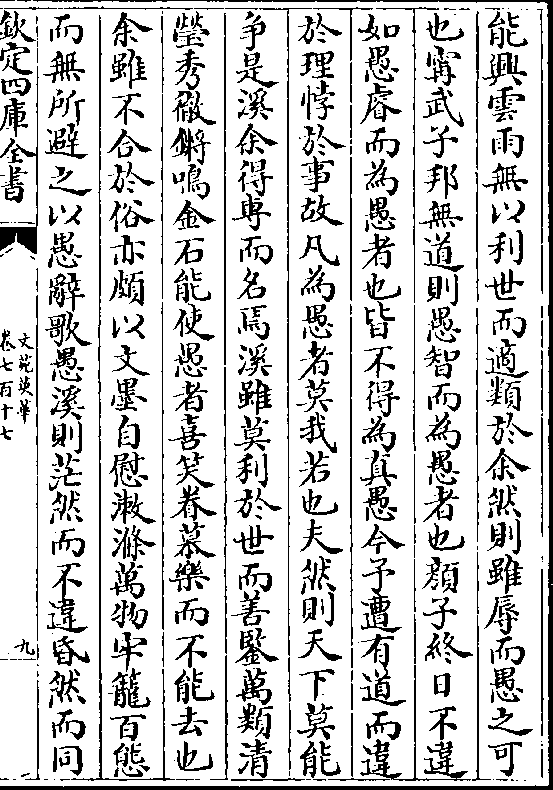 能興雲雨無以利世而適類於余然則雖辱而愚之可
也甯武子邦無道則愚智而為愚者也顔子終日不違
如愚睿而為愚者也皆不得為真愚今予遭有道而違
於理悖於事故凡為愚者莫我若也夫然則天下莫能
争是溪余得專而名焉溪雖莫利於世而善鑒萬類清
瑩秀徹鏘鳴金石能使愚者喜笑眷慕樂而不能去也
余雖不合於俗亦頗以文墨自慰漱滌萬物牢籠百態
而無所避之以愚辭歌愚溪則茫然而不違昏然而同
欽定四庫全書
文苑英華
卷七百十七
九